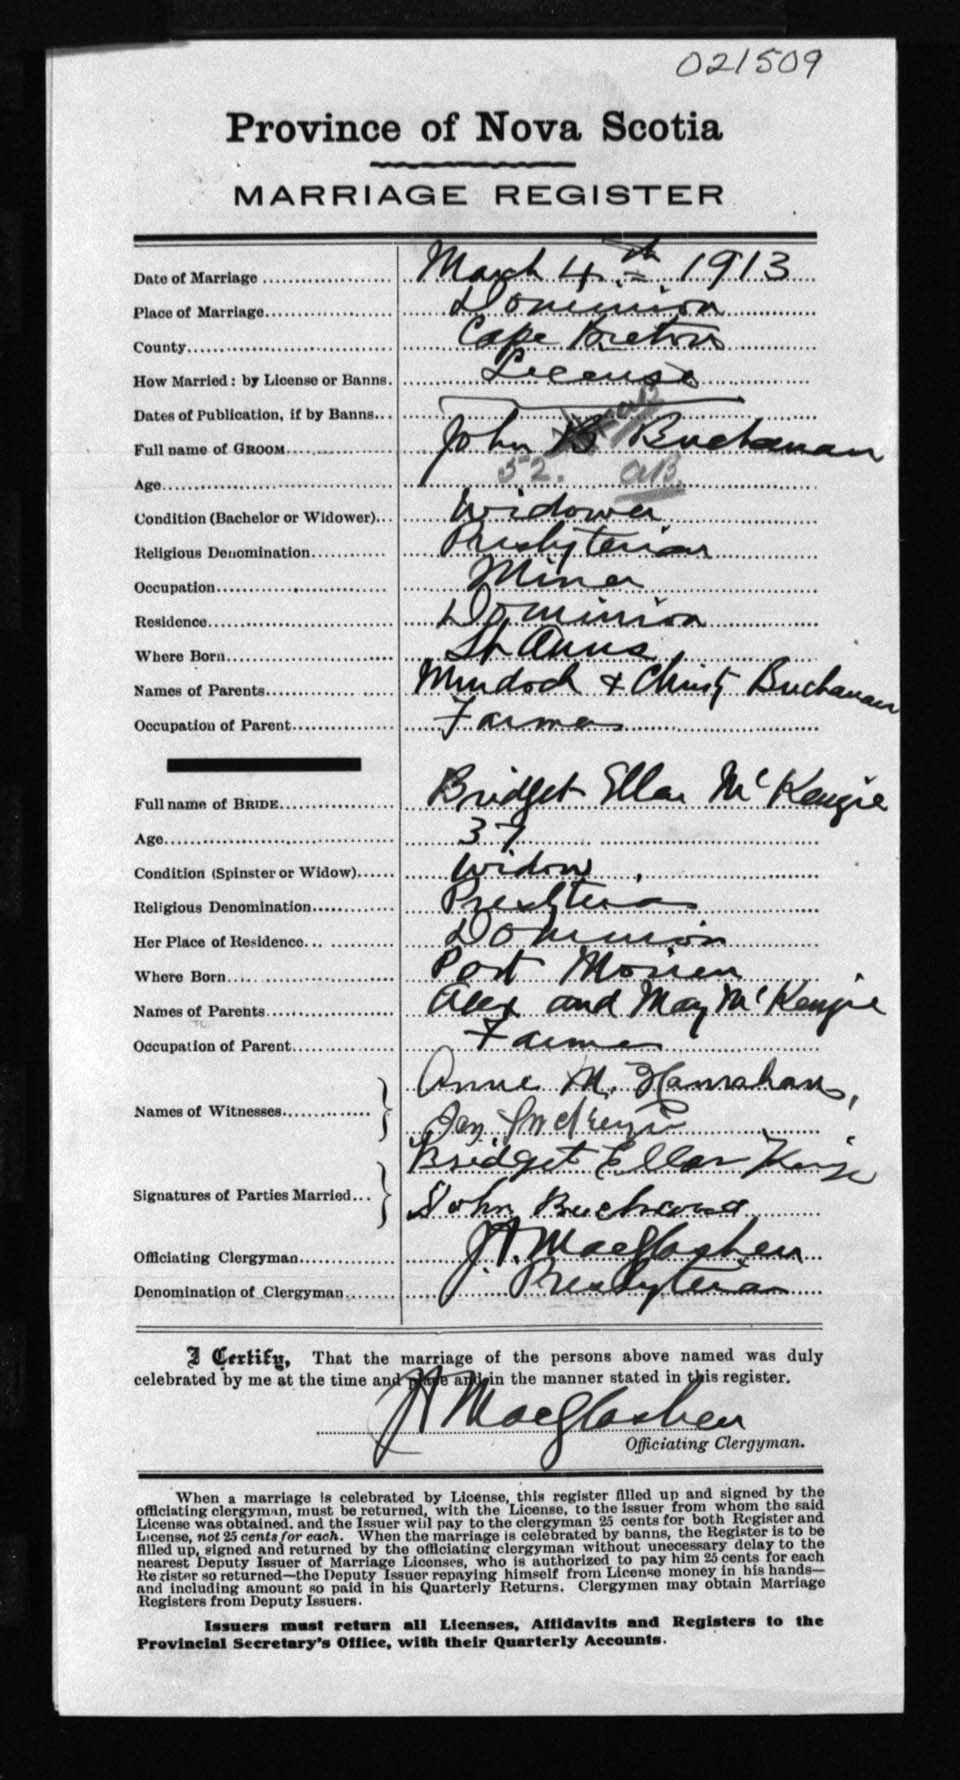 021509
Province of Nova Scotia
MARRIAGE REGISTER
Date of Marriage March 4th 1913
Place of Marriage Dominion
County Cape Breton
How Married: by License or Banns. License
Dates of Publication, if by Banns
Full name of GROOM John Buchanan
Age 52. aB
Condition (Bachelor or Widower) Widower
Religious Denomination Presbyterian
Occupation Miner
Residence Dominion
Where Born St Anns
Names of Parents Murdoch & Christy Buchanan
Occupation of Parent Farmer
Full name of BRIDE Bridget Ellar McKenzie
Age 37
Condition (Spinster or Widow) Widow
Religious Denomination Presbyterian
Her Place of Residence Dominion
Where Born Port Morien
Names of Parents Alex and May McKenzie
Occupation of Parent Farmer
Names of Witnesses Anne M. Hanrahan,
McKenzie
Bridget Ellar
Signatures of Parties Married John Buchanan
Officiating Clergyman J.A. MacGlashen
Denomination of Clergyman Presbyterian
I Certify, That the marriage of the persons above named was duly
celebrated by me at the time and place and in the manner stated in this register.
JA MacGlashen
Officiating Clergyman.
When a marriage is celebrated by License, this register filled up and signed by the
officiating clergyman, must be returned, with the License, to the issuer from whom the said
License was obtained, and the Issuer will pay to the clergyman 25 cents for both Register and
License, not 25 cents for each. When the marriage is celebrated by banns, the Register is to be
filled up, signed and returned by the officiating clergyman without unecessary delay to the
nearest Deputy Issuer of Marriage Licenses, who is authorized to pay him 25 cents for each
Register so returned—the Deputy Issuer repaying himself from License money in his hands—
and including amount so paid in his Quarterly Returns. Clergymen may obtain Marriage
Registers from Deputy Issuers.
Issuers must return all Licenses, Affidavits and Registers to the
Provincial Secretary's Office, with their Quarterly Accounts.